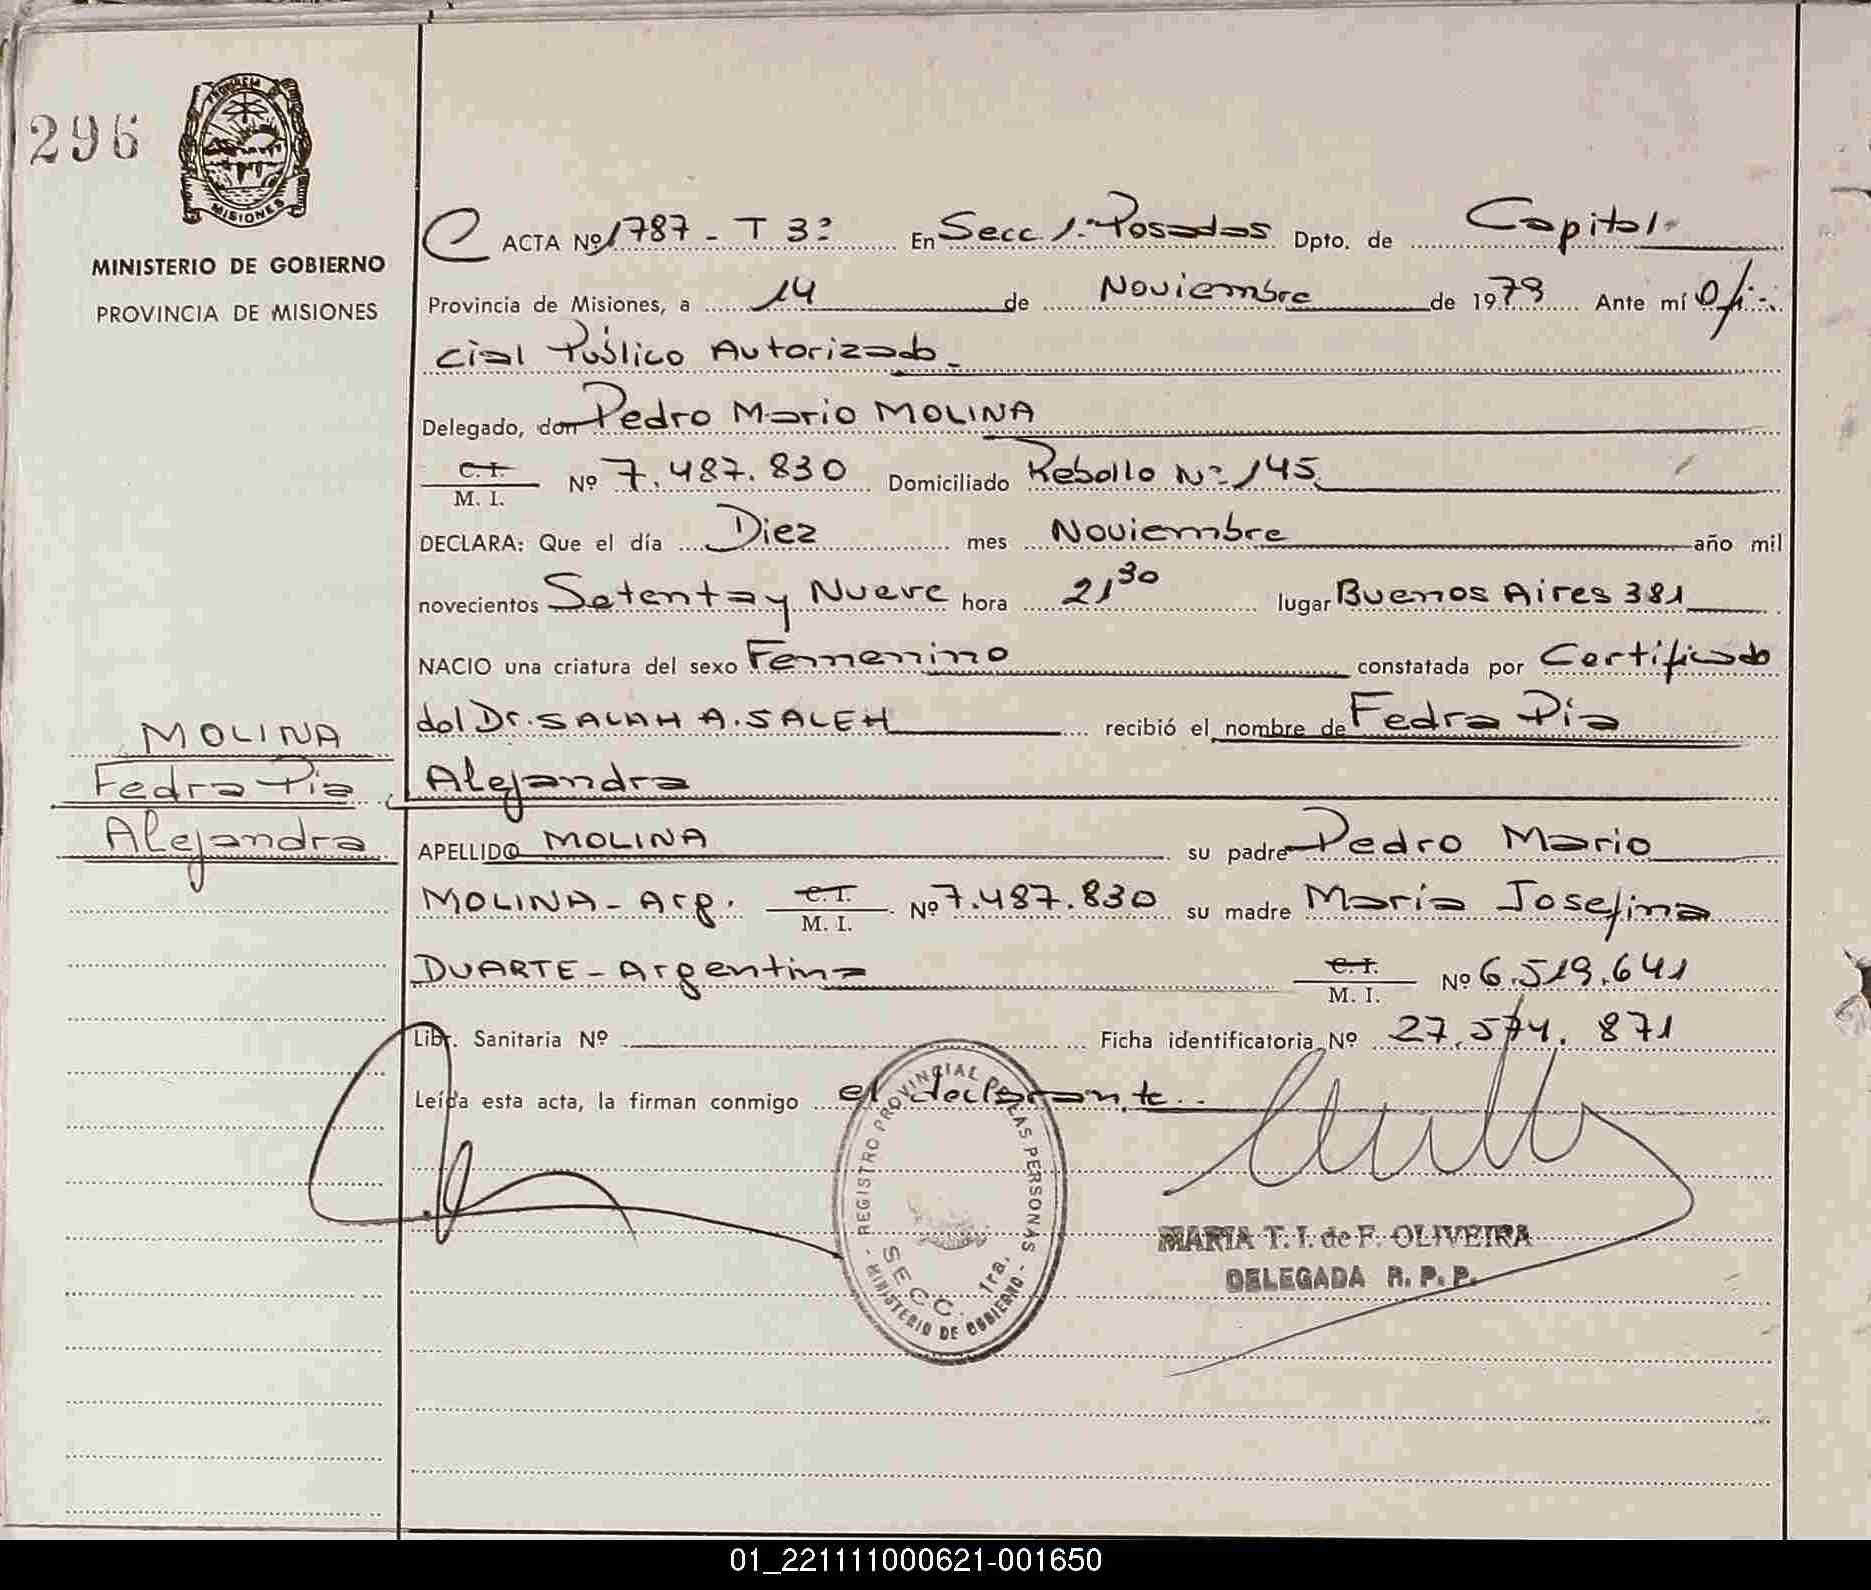 296
PROVINCIA DE
MISIONES
MINISTERIO DE GOBIERNO
PROVINCIA DE MISIONES
C ACTA Nº 1787 - T 3º En Secc 1ª Posadas Dpto. de Capital
Provincia de Misiones, a 14 de Noviembre de 1979 Ante mí Ofi-
cial Público Autorizado.
Delegado, don Pedro Mario MOLINA
C. I.
M. I. Nº 7.487.830 Domiciliado Rebollo Nº 145
DECLARA: Que el día Diez mes Noviembre año mil
novecientos Setenta y Nueve hora 21 30 lugar Buenos Aires 381
NACIO una criatura del sexo Femenino constatada por Certificado
del Dr. SALAH A. SALEH recibió el nombre de Fedra Pia
Alejandra
MOLINA
Fedra Pia
Alejandra
APELLIDO MOLINA su padre Pedro Mario
MOLINA - Arg. C. I. M. I. Nº 7.487.830 su madre María Josefina
DUARTE - Argentina C. I. M. I. Nº 6.519.641
Libr. Sanitaria Nº Ficha identificatoria Nº 27.574.871
Leída esta acta, la firman conmigo el declarante.
REGISTRO PROVINCIAL DE LAS PERSONAS
SECC. 1ra.
MINISTERIO DE GOBIERNO
MARIA T. I. de F. OLIVEIRA
DELEGADA R. P. P.
01_221111000621-001650